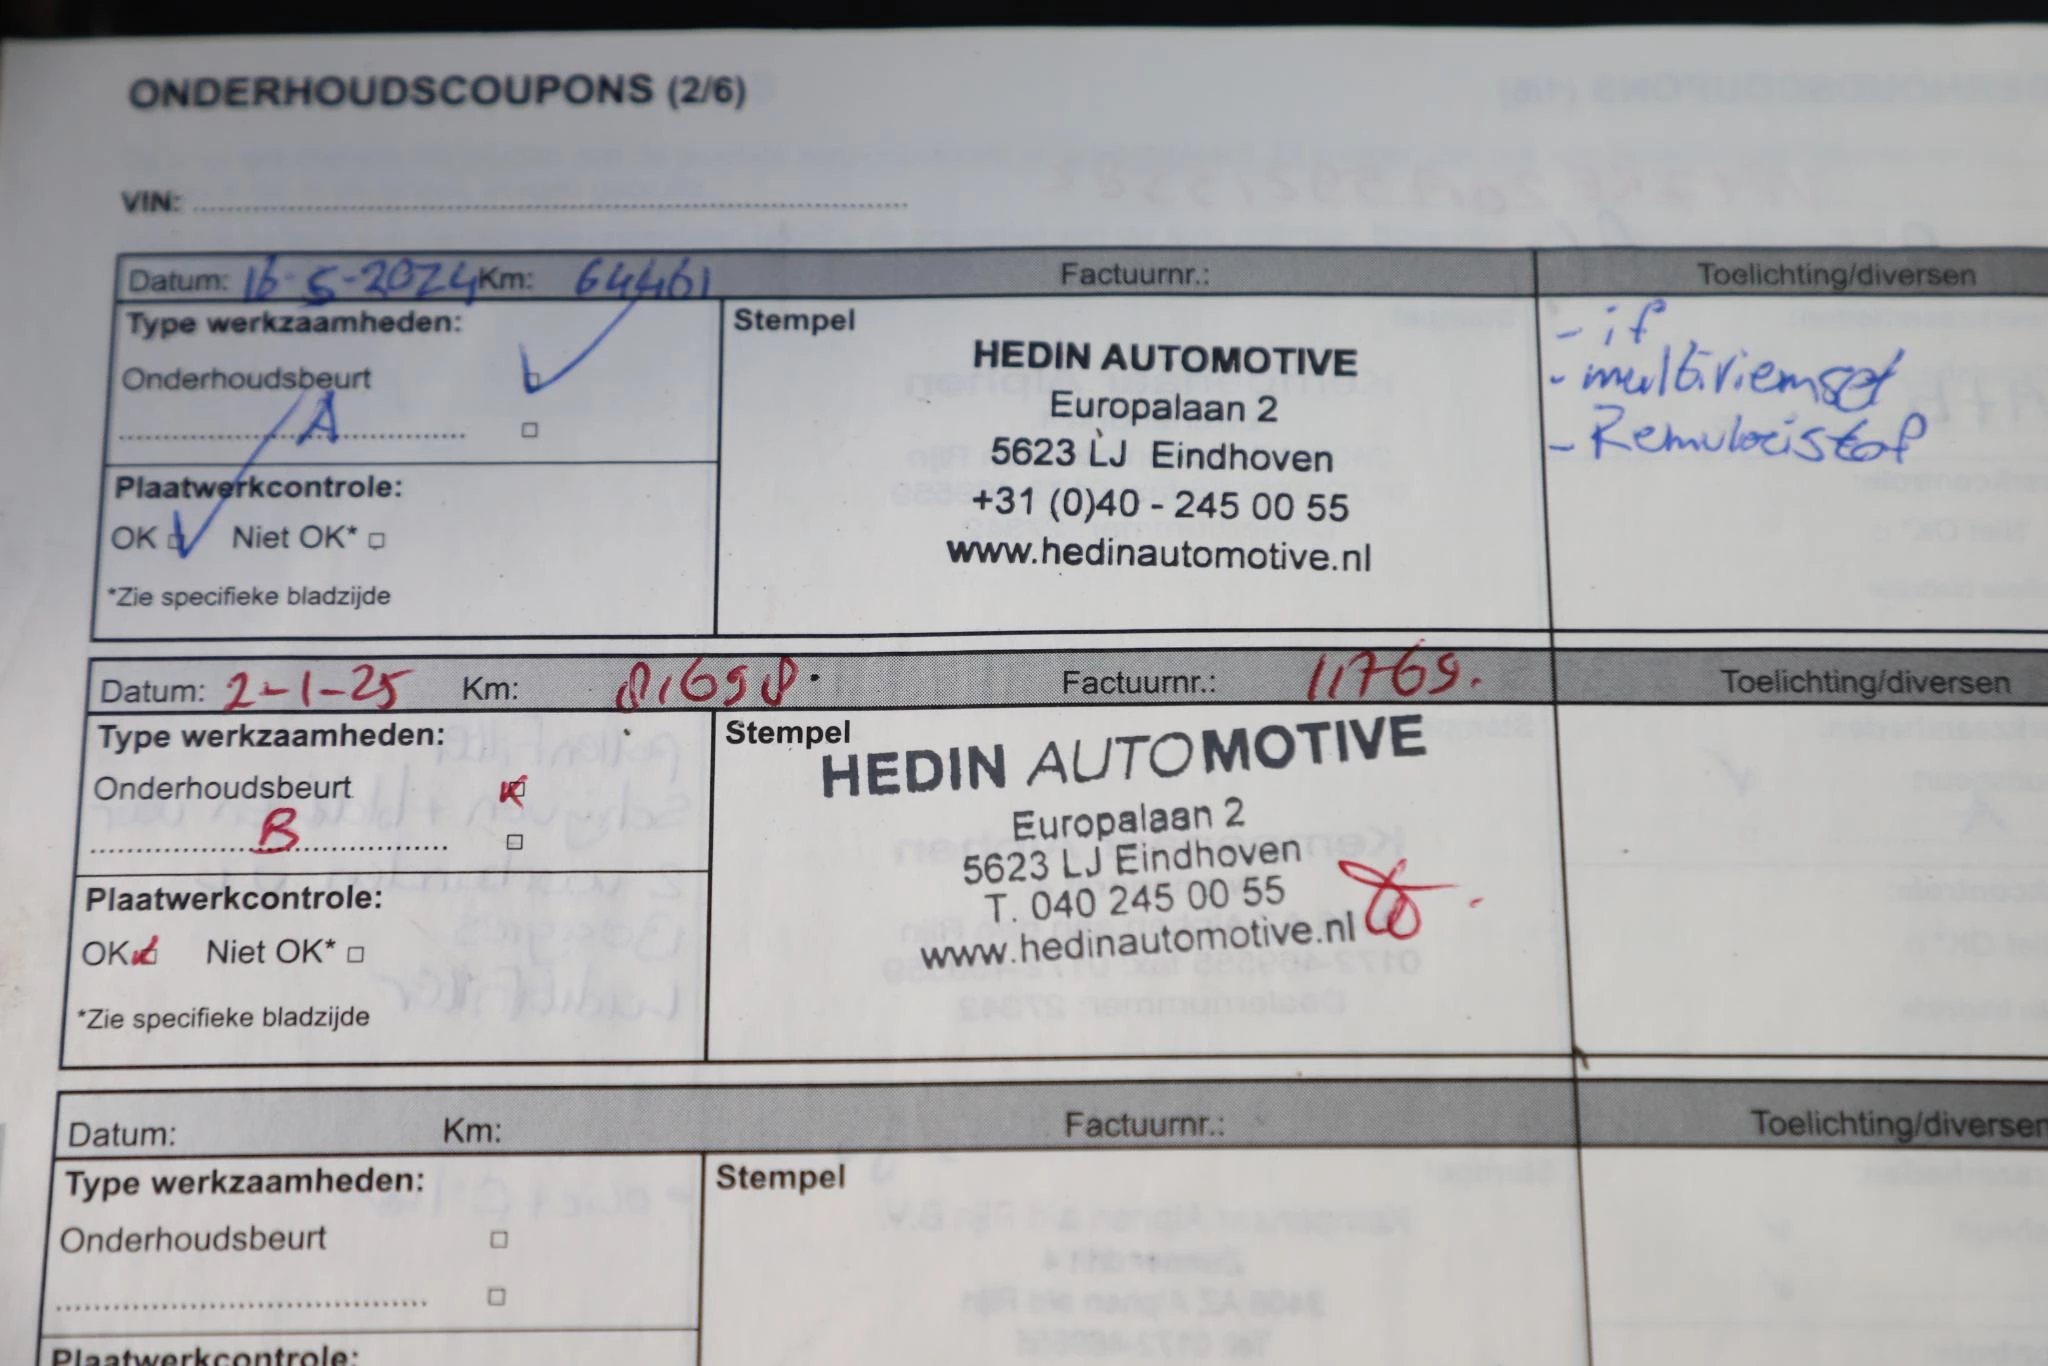 ONDERHOUDSCOUPONS (2/6)
VIN:
Datum: 16-5-2024 Km: 64461 Factuurnr.: Toelichting/diversen
Type werkzaamheden:
Onderhoudsbeurt
A
Plaatwerkcontrole:
OK Niet OK*
*Zie specifieke bladzijde
Stempel
HEDIN AUTOMOTIVE
Europalaan 2
5623 LJ Eindhoven
+31 (0)40 - 245 00 55
www.hedinautomotive.nl
- if
- multiriemset
- Remvloeistof
Datum: 2-1-25 Km: 81698 Factuurnr.: 11769. Toelichting/diversen
Type werkzaamheden:
Onderhoudsbeurt
B
Plaatwerkcontrole:
OK Niet OK*
*Zie specifieke bladzijde
Stempel
HEDIN AUTOMOTIVE
Europalaan 2
5623 LJ Eindhoven
T. 040 245 00 55
www.hedinautomotive.nl
Datum: Km: Factuurnr.: Toelichting/diversen
Type werkzaamheden:
Onderhoudsbeurt
Stempel
Plaatwerkcontrole: